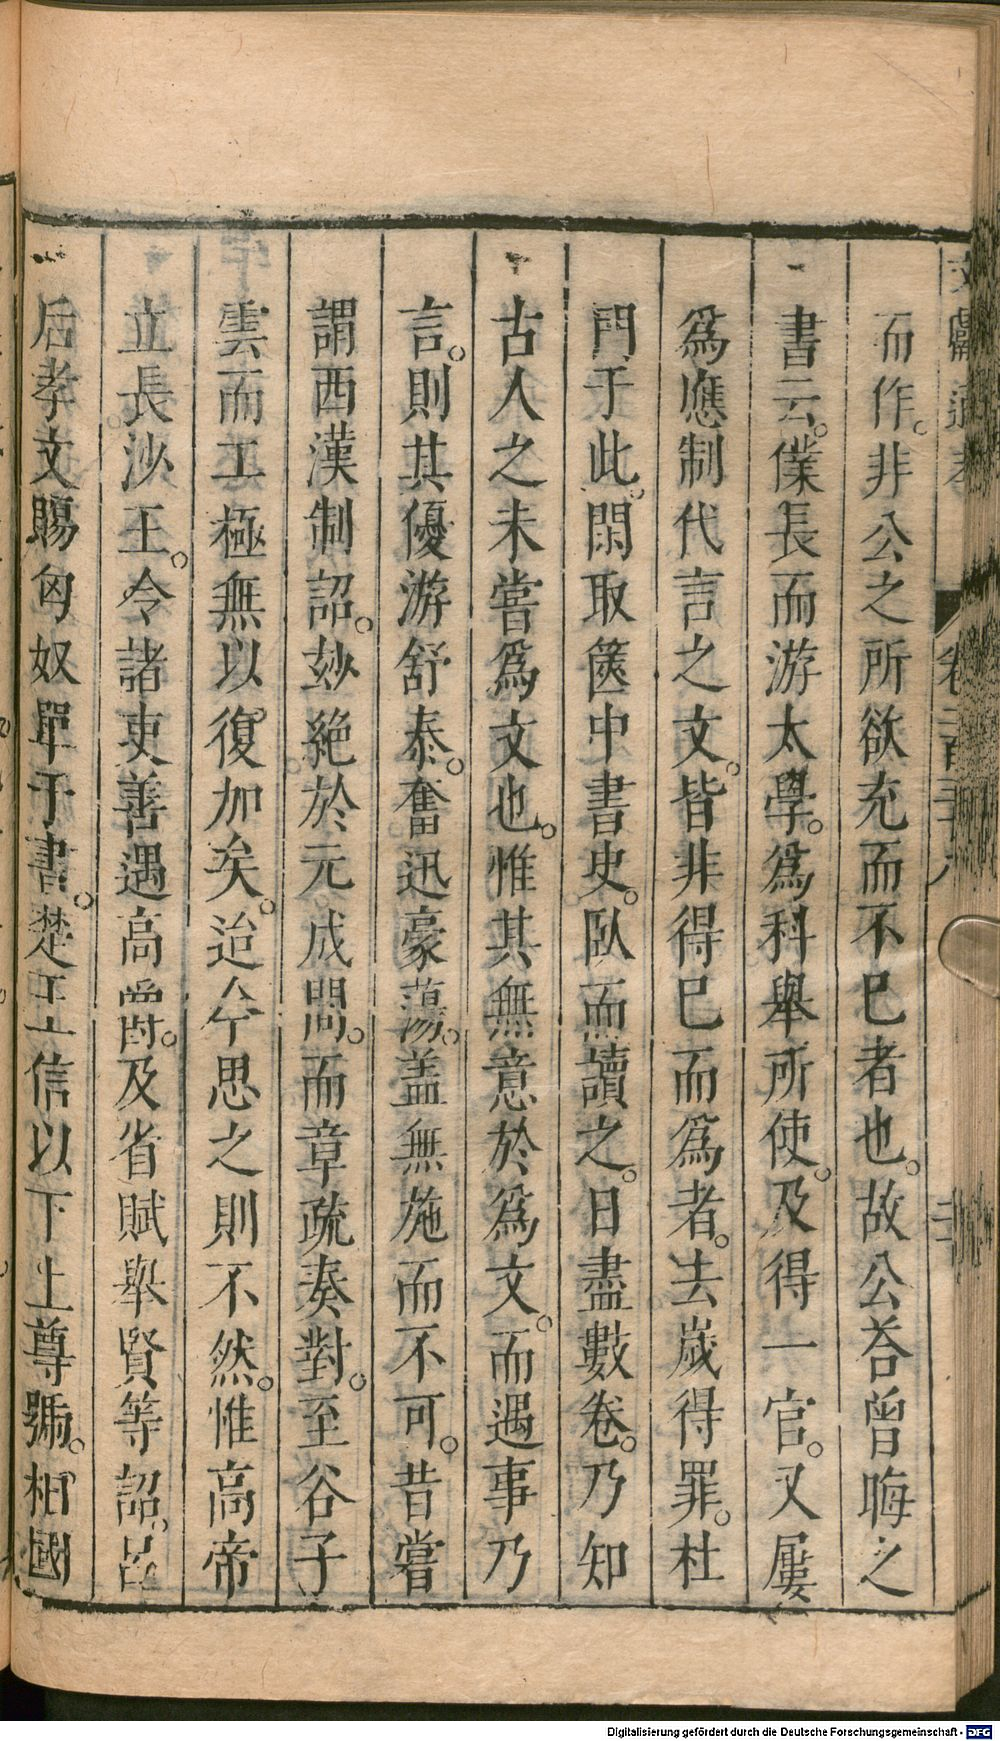 文獻通考 卷二百三十八 二十
而作。非公之所欲充而不已者也。故公荅曾晦之
書云。僕長而游太學。爲科舉所使。及得一官。又屢
爲應制代言之文。皆非得已而爲者。去歲得罪。杜
門于此。閑取篋中書史。臥而讀之。日盡數卷。乃知
古人之未嘗爲文也。惟其無意於爲文。而遇事乃
言。則其優游舒泰。奮迅豪蕩。盖無施而不可。昔嘗
謂西漢制詔。玅絶於元成間。而章疏奏對。至谷子
雲而工極無以復加矣。迨今思之則不然。惟高帝
立長沙王。令諸吏善遇高爵。及省賦舉賢等詔。吕
后孝文賜匈奴單于書。楚王信以下上尊號。相國
Digitalisierung gefördert durch die Deutsche Forschungsgemeinschaft - DFG